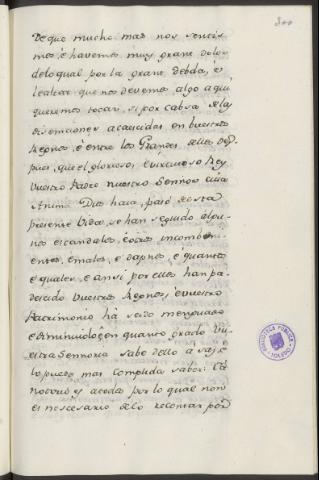 300
De que mucho mas nos sentis
mos, é havemos muy grave dolor
de lo qual por la grave debda, é
lealtat que vos devemos algo aqui
queremos tocar, si por cabsa de las
disensiones acaescidas en buestros
Regnos, é entre los Grandes dellos des
pues, que el glorioso, é virtuoso Rey
vuestro Padre nuestro Señor cuia
Anima Dios haia, pasó desta
presente vida, se han seguido algu
nos escandalos, é otros incombeni
entes, é males, é dapnos, é quantos
é quales, é ansi por ellos han pa
descido vuestros Regnos, é vuestro
Patrimonio há seido menguado
e diminuido, é en quanto grado Vu
estra Señoria sabe dello á saz, é
lo puede mas complida saber: Co
es acerca por lo qual non
es nescesario de lo recontar por
BIBLIOTECA PUBLICA
TOLEDO